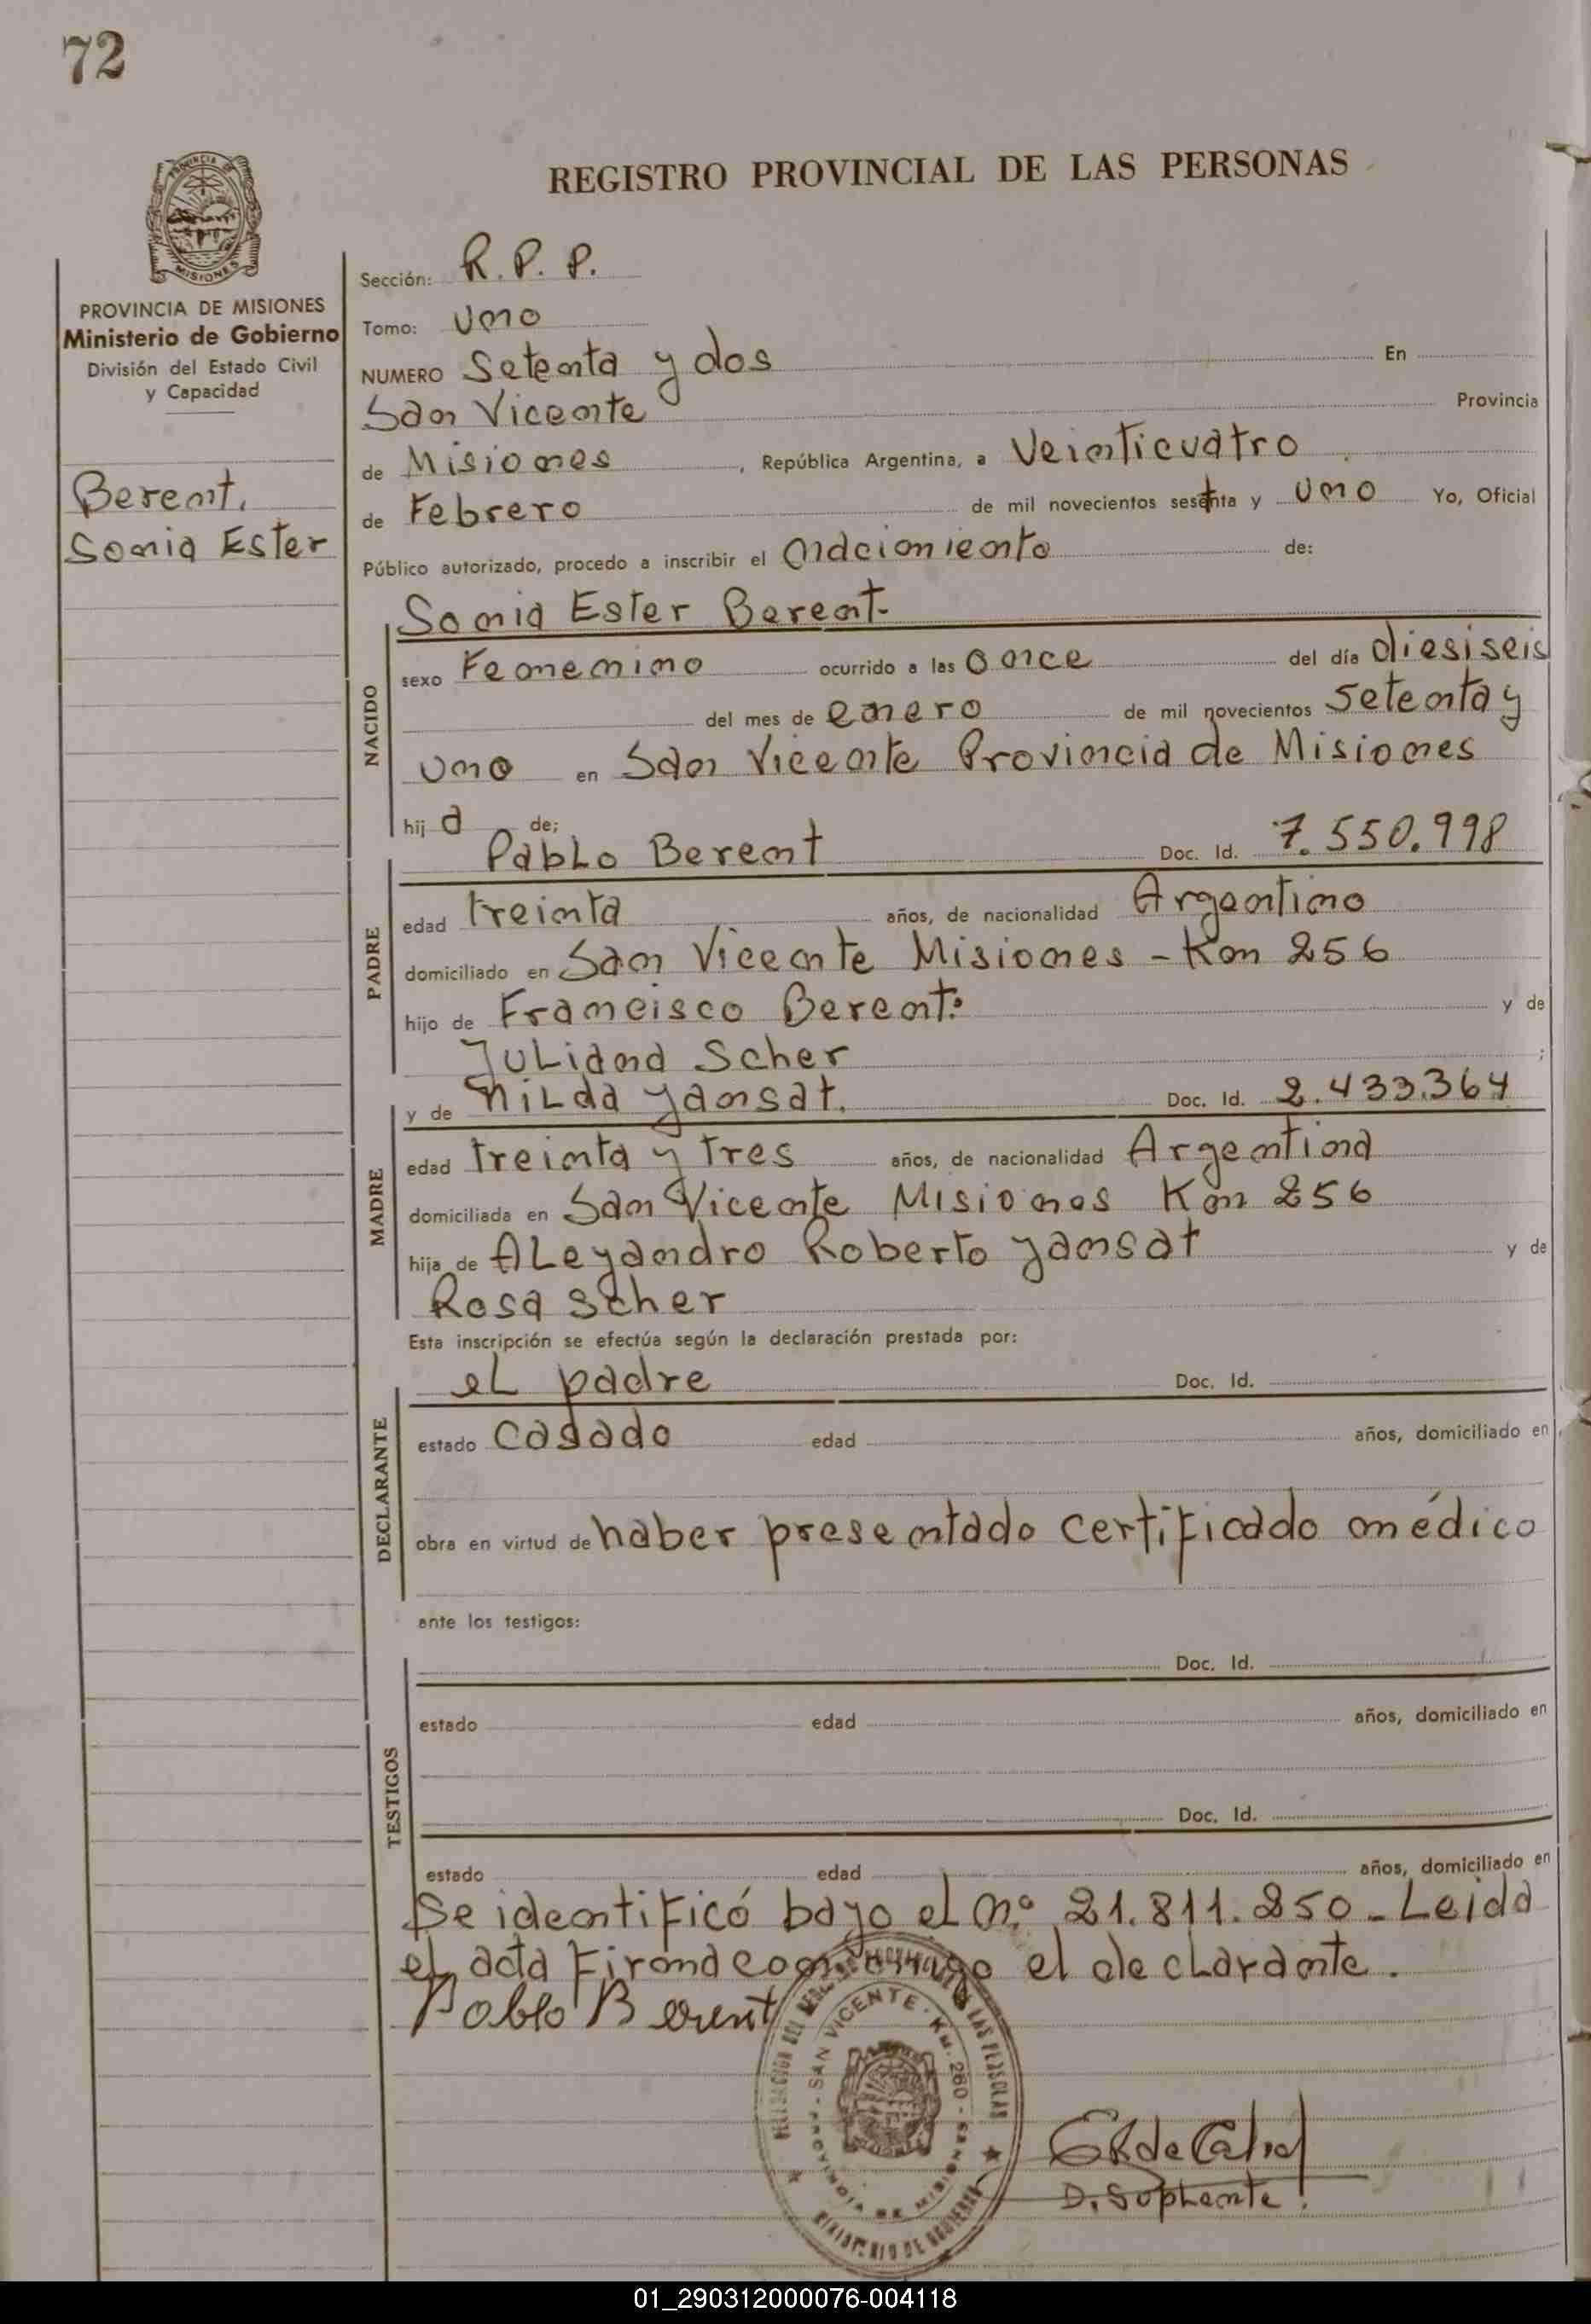 72
REGISTRO PROVINCIAL DE LAS PERSONAS
PROVINCIA DE
MISIONES
PROVINCIA DE MISIONES
Ministerio de Gobierno
División del Estado Civil
y Capacidad
Berent.
Sonia Ester
Sección: R. P. P.
Tomo: Uno
NUMERO Setenta y dos En
San Vicente Provincia
de Misiones, República Argentina, a Veinticuatro
de Febrero de mil novecientos sesetnta y uno Yo, Oficial
Público autorizado, procedo a inscribir el nacimiento de:
NACIDO
Sonia Ester Berent-
sexo Femenino ocurrido a las once del día diesiseis
del mes de enero de mil novecientos setenta y
uno en San Vicente Provincia de Misiones
hija de;
PADRE
Pablo Berent Doc. Id. 7.550.998
edad treinta años, de nacionalidad Argentino
domiciliado en San Vicente Misiones - Km 256
hijo de Francisco Berent. y de
Juliana Scher ;
MADRE
y de Nilda Yansat. Doc. Id. 2.433.364
edad treinta y tres años, de nacionalidad Argentina
domiciliada en San Vicente Misiones Km 256
hija de Aleyandro Roberto Yansat y de
Rosa Scher
Esta inscripción se efectúa según la declaración prestada por:
DECLARANTE
el padre Doc. Id.
estado casado edad años, domiciliado en
obra en virtud de haber presentado certificado médico
ante los testigos:
TESTIGOS
Doc. Id.
estado edad años, domiciliado en
Doc. Id.
estado edad años, domiciliado en
Se identificó bajo el n.º 21.811.250 - Leida
el acta firma conmigo el declarante.
Pablo Berent
SAN VICENTE - KM. 260 - MISIONES
PROVINCIA DE
LAS PERSONAS
MINISTERIO DE GOBIERNO
D. Suplente
01_290312000076-004118